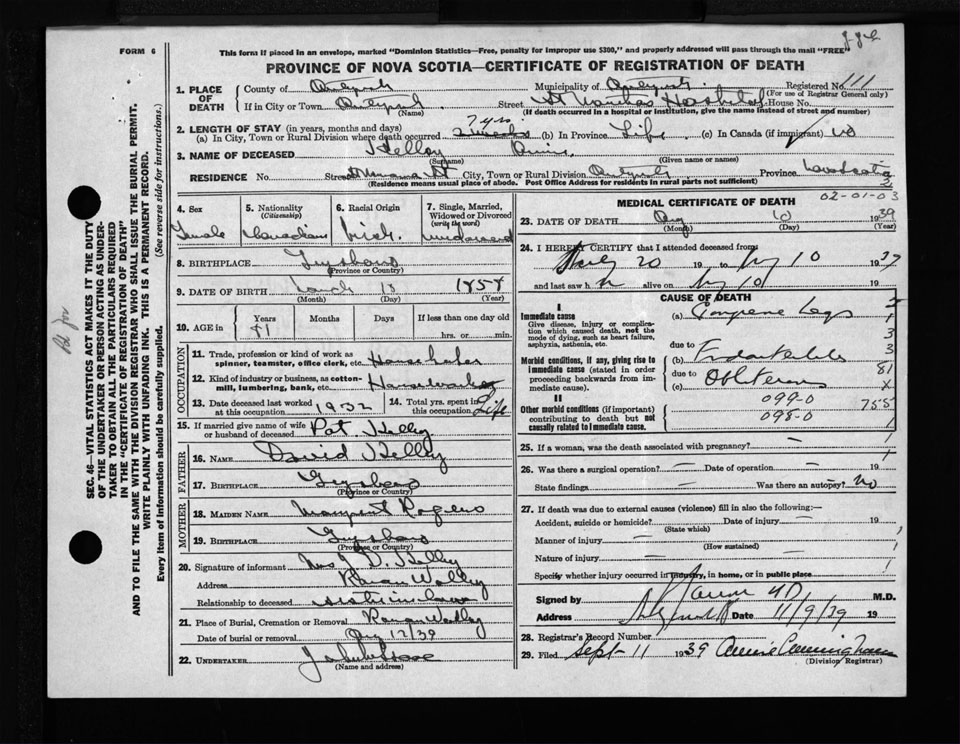 FORM 6
This form if placed in an envelope, marked "Dominion Statistics—Free, penalty for improper use $300," and properly addressed will pass through the mail "FREE"
PROVINCE OF NOVA SCOTIA—CERTIFICATE OF REGISTRATION OF DEATH
SEC. 46—VITAL STATISTICS ACT MAKES IT THE DUTY
OF THE UNDERTAKER OR PERSON ACTING AS UNDER-
TAKER TO OBTAIN ALL THE PARTICULARS REQUIRED
IN THE "CERTIFICATE OF REGISTRATION OF DEATH"
AND TO FILE THE SAME WITH THE DIVISION REGISTRAR WHO SHALL ISSUE THE BURIAL PERMIT.
WRITE PLAINLY WITH UNFADING INK. THIS IS A PERMANENT RECORD.
Every item of information should be carefully supplied. (See reverse side for instructions.)
1. PLACE OF DEATH
County of Municipality of Registered No. 111
(For use of Registrar General only)
If in City or Town Street St Marthas Hospital House No.
(Name) (If death occurred in a hospital or institution, give the name instead of street and number)
2. LENGTH OF STAY (in years, months and days) 7 yrs.
(a) In City, Town or Rural Division where death occurred 2 weeks (b) In Province Life (c) In Canada (if immigrant)
3. NAME OF DECEASED Kelley Annie
(Surname) (Given name or names)
RESIDENCE No. Street St City, Town or Rural Division Province Nova Scotia
(Residence means usual place of abode. Post Office Address for residents in rural parts not sufficient)
02-01-03
4. Sex 5. Nationality (Citizenship) 6. Racial Origin 7. Single, Married, Widowed or Divorced (write the word)
Female Canadian Irish
8. BIRTHPLACE Guysboro
(Province or Country)
9. DATE OF BIRTH March 18 1858
(Month) (Day) (Year)
10. AGE in Years Months Days If less than one day
81 hrs. or min.
OCCUPATION
11. Trade, profession or kind of work as spinner, teamster, office clerk, etc.
12. Kind of industry or business, as cotton-mill, lumbering, bank, etc.
13. Date deceased last worked at this occupation 1932 14. Total yrs. spent in this occupation Life
15. If married give name of wife or husband of deceased Pat. Kelley
FATHER
16. NAME David Kelley
17. BIRTHPLACE Guysboro
(Province or Country)
MOTHER
18. MAIDEN NAME Margaret Rogers
19. BIRTHPLACE Guysboro
(Province or Country)
20. Signature of informant Mrs J. D. Kelley
Address
Relationship to deceased sister in law
21. Place of Burial, Cremation or Removal
Date of burial or removal Aug 12/39
22. UNDERTAKER
MEDICAL CERTIFICATE OF DEATH
23. DATE OF DEATH Aug 10 1939
(Month) (Day) (Year)
24. I HEREBY CERTIFY that I attended deceased from
July 20 19 to 10 1939
and last saw h alive on 10 19
CAUSE OF DEATH
I
Immediate cause
Give disease, injury or complication which caused death, not the mode of dying, such as heart failure, asphyxia, asthenia, etc.
(a) Gangrene Legs
due to
Morbid conditions, if any, giving rise to immediate cause (stated in order proceeding backwards from immediate cause).
(b)
due to
(c) Obliterans
II
Other morbid conditions (if important) contributing to death but not causally related to immediate cause.
099-0
098-0
25. If a woman, was the death associated with pregnancy? —
26. Was there a surgical operation? — Date of operation — 19
State findings — Was there an autopsy? No
27. If death was due to external causes (violence) fill in also the following:—
Accident, suicide or homicide? Date of injury — 19
(State which)
Manner of injury —
(How sustained)
Nature of injury —
Specify whether injury occurred in industry, in home, or in public place
Signed by M.D.
Address Date 11/9/39 19
28. Registrar's Record Number
29. Filed Sept 11 1939 Annie Cunningham
(Division Registrar)